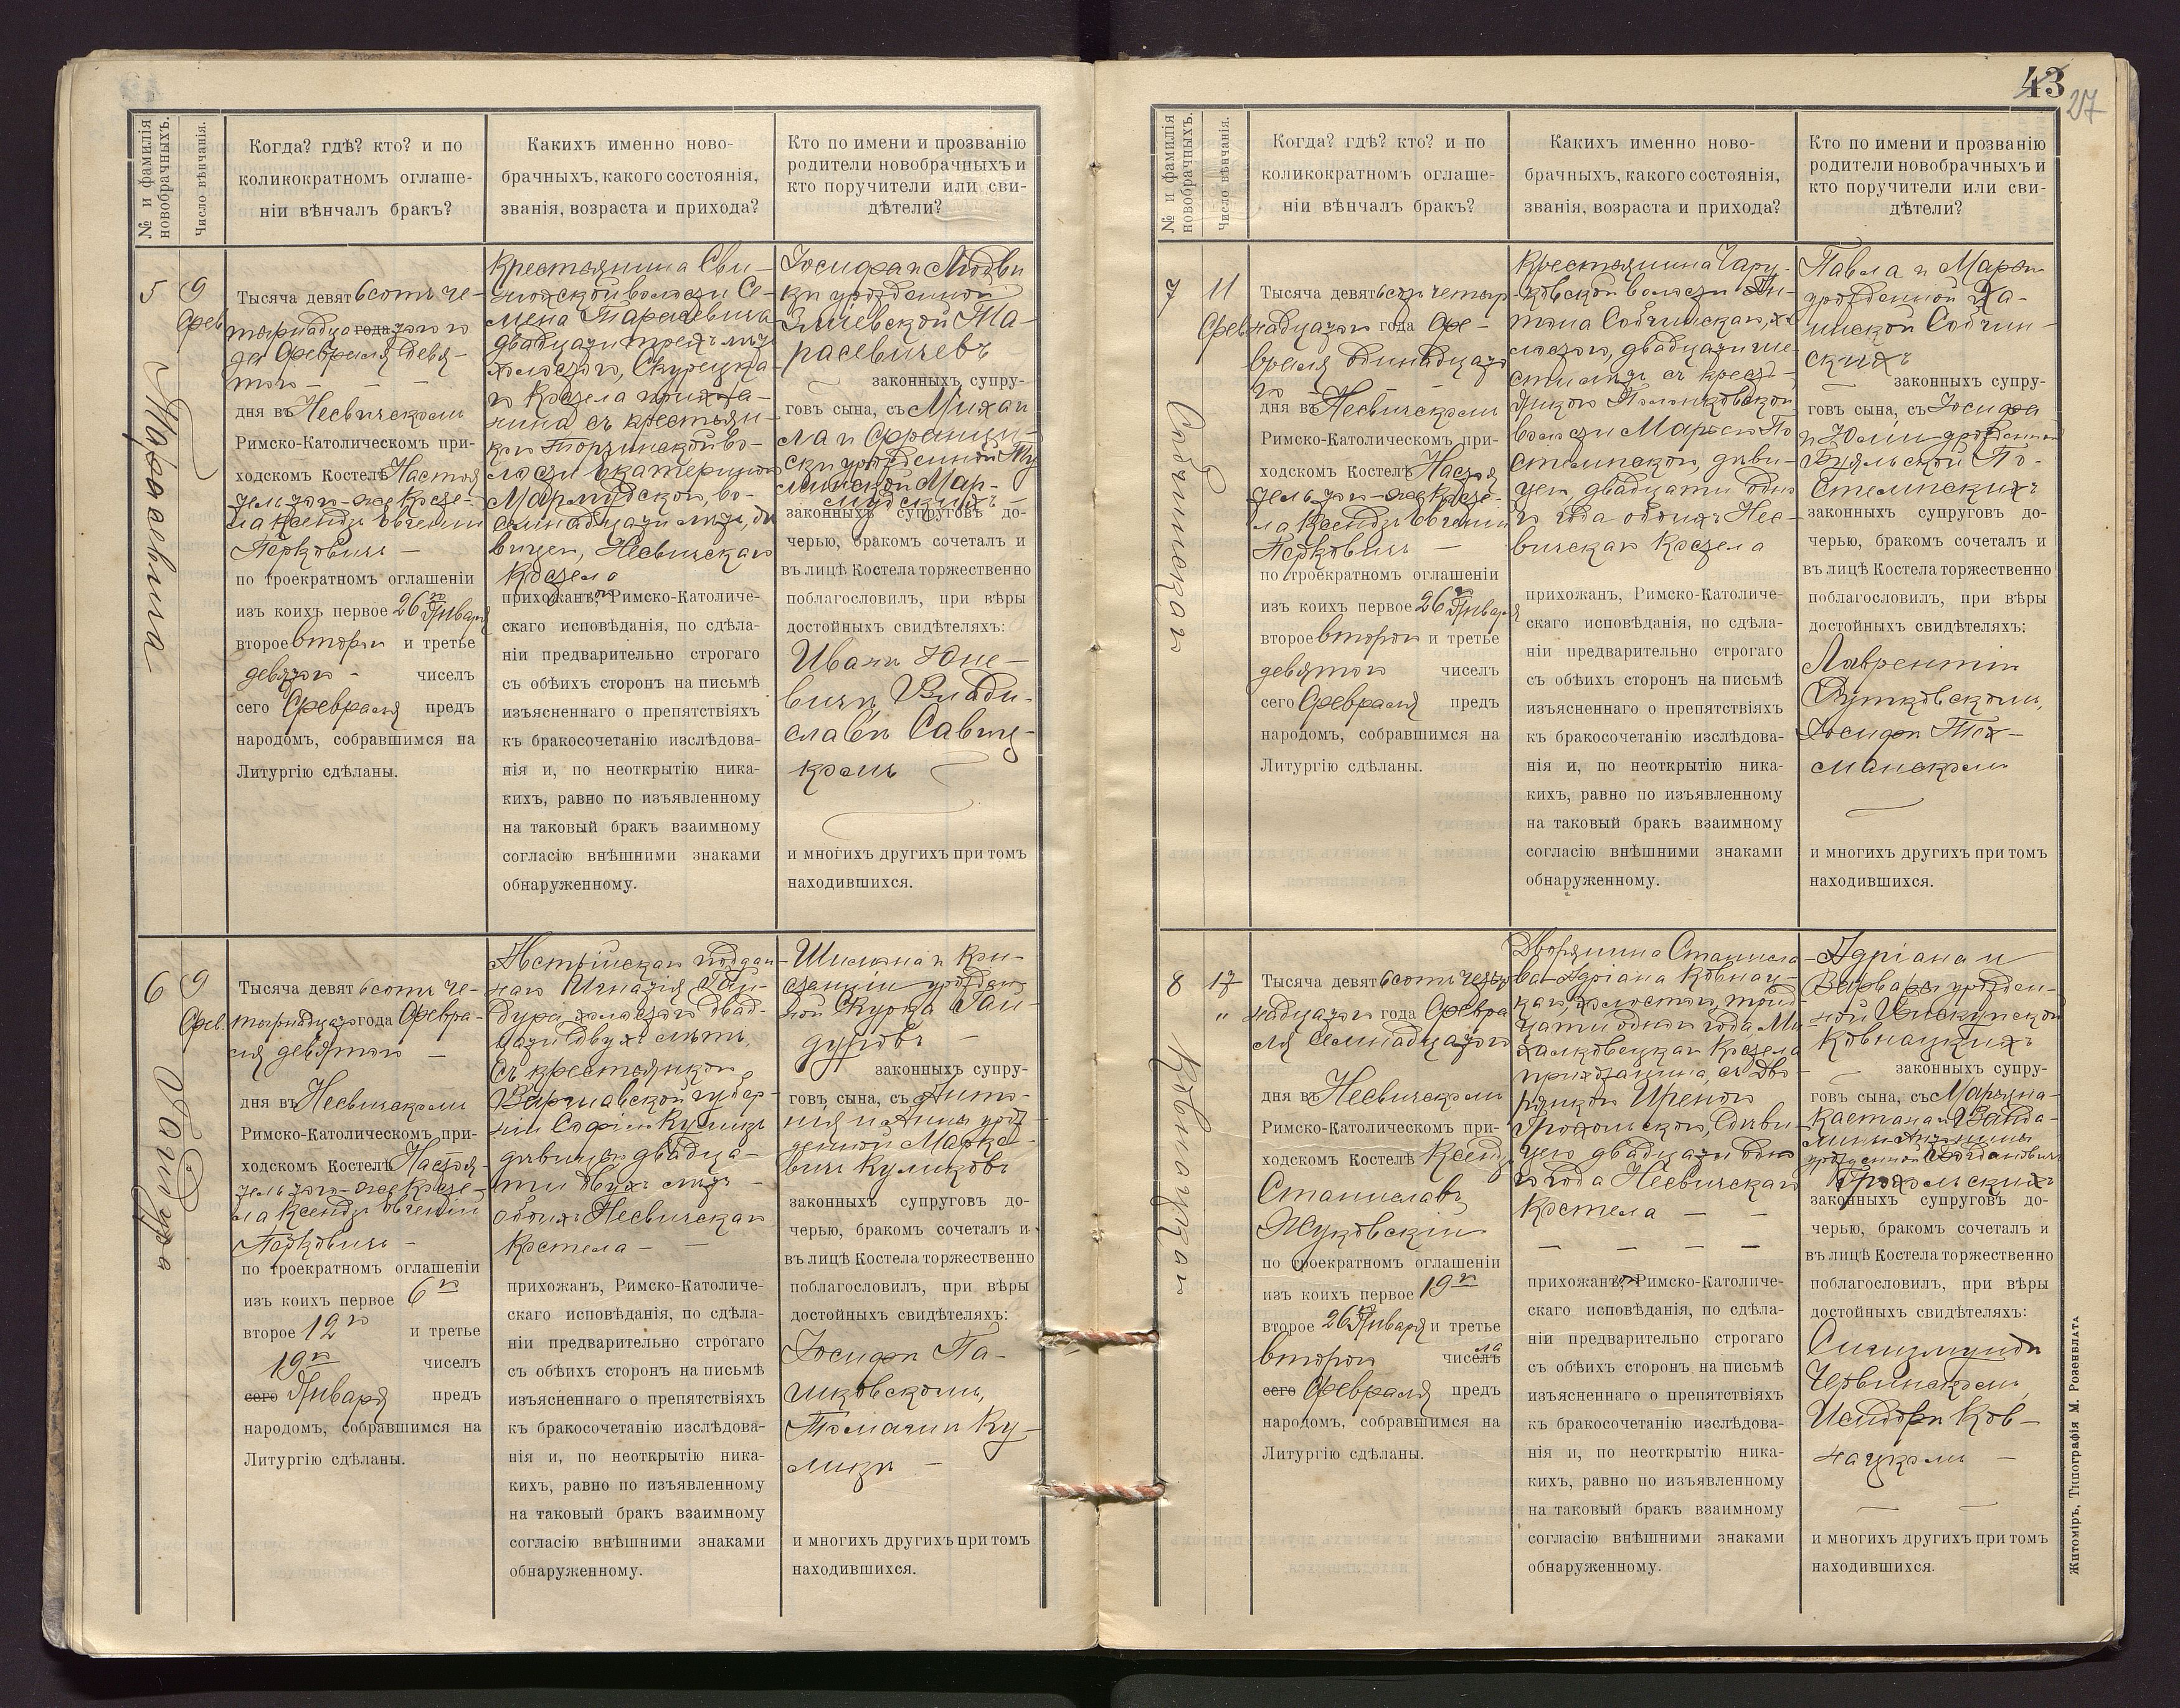 № и фамилія новобрачныхъ.
Число вѣнчанія.
Когда? гдѣ? кто? и по
коликократномъ оглаше-
ніи вѣнчалъ бракъ?
Какихъ именно ново-
брачныхъ, какого состоянія,
званія, возраста и прихода?
Кто по имени и прозванію
родители новобрачныхъ и
кто поручители или сви-
дѣтели?
5
9
Февр.
Тарасевича
Тысяча девятьсотъ че-
тырнадцатого го
да Февраля девя-
того
дня въ Несвичскомъ
Римско-Католическомъ при-
ходскомъ Костелѣ Настоя
тель того-же Косте-
ла Ксендзъ Евгеній
Перковичъ
по троекратномъ оглашеніи
изъ коихъ первое 26го Января
второе второго и третье
девятого чиселъ
сего Февраля предъ
народомъ, собравшимся на
Литургію сдѣланы.
Крестьянина Сви-
нюхской волости Се-
мена Тарасевича
двадцати трехъ лѣтъ
холостого, Скурецка-
го Костела прихожа-
нина съ крестьян-
кою Торчинской во-
лости Екатериною
Мармудскою, во-
семнадцати лѣтъ, дѣ
вицею, Несвичскаго
Костела
прихожанъ, Римско-Католиче-
скаго исповѣданія, по сдѣла-
ніи предварительно строгаго
съ обѣихъ сторонъ на письмѣ
изъясненнаго о препятствіяхъ
къ бракосочетанію изслѣдова-
нія и, по неоткрытію ника-
кихъ, равно по изъявленному
на таковый бракъ взаимному
согласію внѣшними знаками
обнаруженному.
Іосифа и Людви
ки урожденной
Зличевской Та-
расевичевъ
законныхъ супру-
говъ сына, съ Михаи
ла и Францис-
ски урожденной
Мар-
мудскихъ
законныхъ супруговъ до-
черью, бракомъ сочеталъ и
въ лицѣ Костела торжественно
поблагословилъ, при вѣры
достойныхъ свидѣтеляхъ:
Иванѣ Юне-
вичѣ, Влади-
славѣ Савиц-
комъ
и многихъ другихъ при томъ
находившихся.
6
9
Февр.
Гандура
Тысяча девятьсотъ че-
тырнадцатого года Февра-
ля девятого
дня въ Несвичскомъ
Римско-Католическомъ при-
ходскомъ Костелѣ Настоя-
тель того-же Косте-
ла Ксендзъ Евгеній
Перковичъ
по троекратномъ оглашеніи
изъ коихъ первое 6го
второе 12го и третье
19го чиселъ
сего Января предъ
народомъ, собравшимся на
Литургію сдѣланы.
Австрійскаго поддан-
наго Игнатія Ган-
дура, холостого двад-
цати двухъ лѣтъ,
съ крестьянкою
Варшавской губер-
ніи Софіею Куликъ
дѣвицею двадца-
ти двухъ лѣтъ
обоихъ Несвичскаго
Костела
прихожанъ, Римско-Католиче-
скаго исповѣданія, по сдѣла-
ніи предварительно строгаго
съ обѣихъ сторонъ на письмѣ
изъясненнаго о препятствіяхъ
къ бракосочетанію изслѣдова-
нія и, по неоткрытію ника-
кихъ, равно по изъявленному
на таковый бракъ взаимному
согласію внѣшними знаками
обнаруженному.
Шимона и Кон-
станціи урожден
ной Курта Ган-
дуровъ
законныхъ супру-
говъ сына, съ Анто-
нія и Анны урож
денной Марке-
вичъ Куликовъ
законныхъ супруговъ до-
черью, бракомъ сочеталъ и
въ лицѣ Костела торжественно
поблагословилъ, при вѣры
достойныхъ свидѣтеляхъ:
Іосифѣ Па-
шковскомъ,
Томашѣ Ку-
ликѣ
и многихъ другихъ при томъ
находившихся.
43
27
№ и фамилія новобрачныхъ.
Число вѣнчанія.
Когда? гдѣ? кто? и по
коликократномъ оглаше-
ніи вѣнчалъ бракъ?
Какихъ именно ново-
брачныхъ, какого состоянія,
званія, возраста и прихода?
Кто по имени и прозванію
родители новобрачныхъ и
кто поручители или сви-
дѣтели?
7
11
Февр.
Собчинскаго
Тысяча девятьсотъ четыр-
надцатого года Фе-
враля одинадцато
го
дня въ Несвичскомъ
Римско-Католическомъ при-
ходскомъ Костелѣ Настоя
тель того-же Косте-
ла Ксендзъ Евгеній
Перковичъ
по троекратномъ оглашеніи
изъ коихъ первое 26го Января
второе второго и третье
девятого чиселъ
сего Февраля предъ
народомъ, собравшимся на
Литургію сдѣланы.
Крестьянина Чару-
ковской волости Ан-
тона Собчинскаго, хо
лостого, двадцати ше-
сти лѣтъ съ кресть-
янкою Полонковской
волости Маріею По
стемпскою, дѣви-
цею, двадцати одно
го года обоихъ Нес-
вичскаго Костела
прихожанъ, Римско-Католиче-
скаго исповѣданія, по сдѣла-
ніи предварительно строгаго
съ обѣихъ сторонъ на письмѣ
изъясненнаго о препятствіяхъ
къ бракосочетанію изслѣдова-
нія и, по неоткрытію ника-
кихъ, равно по изъявленному
на таковый бракъ взаимному
согласію внѣшними знаками
обнаруженному.
Павла и Маріи
урожденной
Собчин-
скихъ
законныхъ супру-
говъ сына, съ Іосифа
и Юліи урожденной
По-
стемпскихъ
законныхъ супруговъ до-
черью, бракомъ сочеталъ и
въ лицѣ Костела торжественно
поблагословилъ, при вѣры
достойныхъ свидѣтеляхъ:
Лаврентіи
Рутковскомъ,
Іосифѣ Тох-
манскомъ
и многихъ другихъ при томъ
находившихся.
8
17
"
Ковнацкаго
Тысяча девятьсотъ четыр
надцатого года Февра
ля семнадцатого
дня въ Несвичскомъ
Римско-Католическомъ при-
ходскомъ Костелѣ Ксендзъ
Станиславъ
Жуковскій
по троекратномъ оглашеніи
изъ коихъ первое 19го
второе 26го Января и третье
второго числа
сего Февраля предъ
народомъ, собравшимся на
Литургію сдѣланы.
Дворянина Станисла
ва-Адріана Ковнац-
каго, холостого, трид
цати одного года Ми
халковецкаго Костела
прихожанина, съ Дво-
рянкою Иреною
Грохольскою, дѣви
цею двадцати одно
го года Несвичскаго
Костела
прихожанъ, Римско-Католиче-
скаго исповѣданія, по сдѣла-
ніи предварительно строгаго
съ обѣихъ сторонъ на письмѣ
изъясненнаго о препятствіяхъ
къ бракосочетанію изслѣдова-
нія и, по неоткрытію ника-
кихъ, равно по изъявленному
на таковый бракъ взаимному
согласію внѣшними знаками
обнаруженному.
Адріана и
Варвары урожден-
ной Пискунской
Ковнацкихъ
законныхъ супру-
говъ сына, съ Маріана-
Каетана и Ванда-
урожденной Богдановичъ
Грохольскихъ
законныхъ супруговъ до-
черью, бракомъ сочеталъ и
въ лицѣ Костела торжественно
поблагословилъ, при вѣры
достойныхъ свидѣтеляхъ:
Сигизмундѣ
Червинскомъ,
Исидорѣ Ков-
нацкомъ
и многихъ другихъ при томъ
находившихся.
Житоміръ, Типографія М. Розенблата